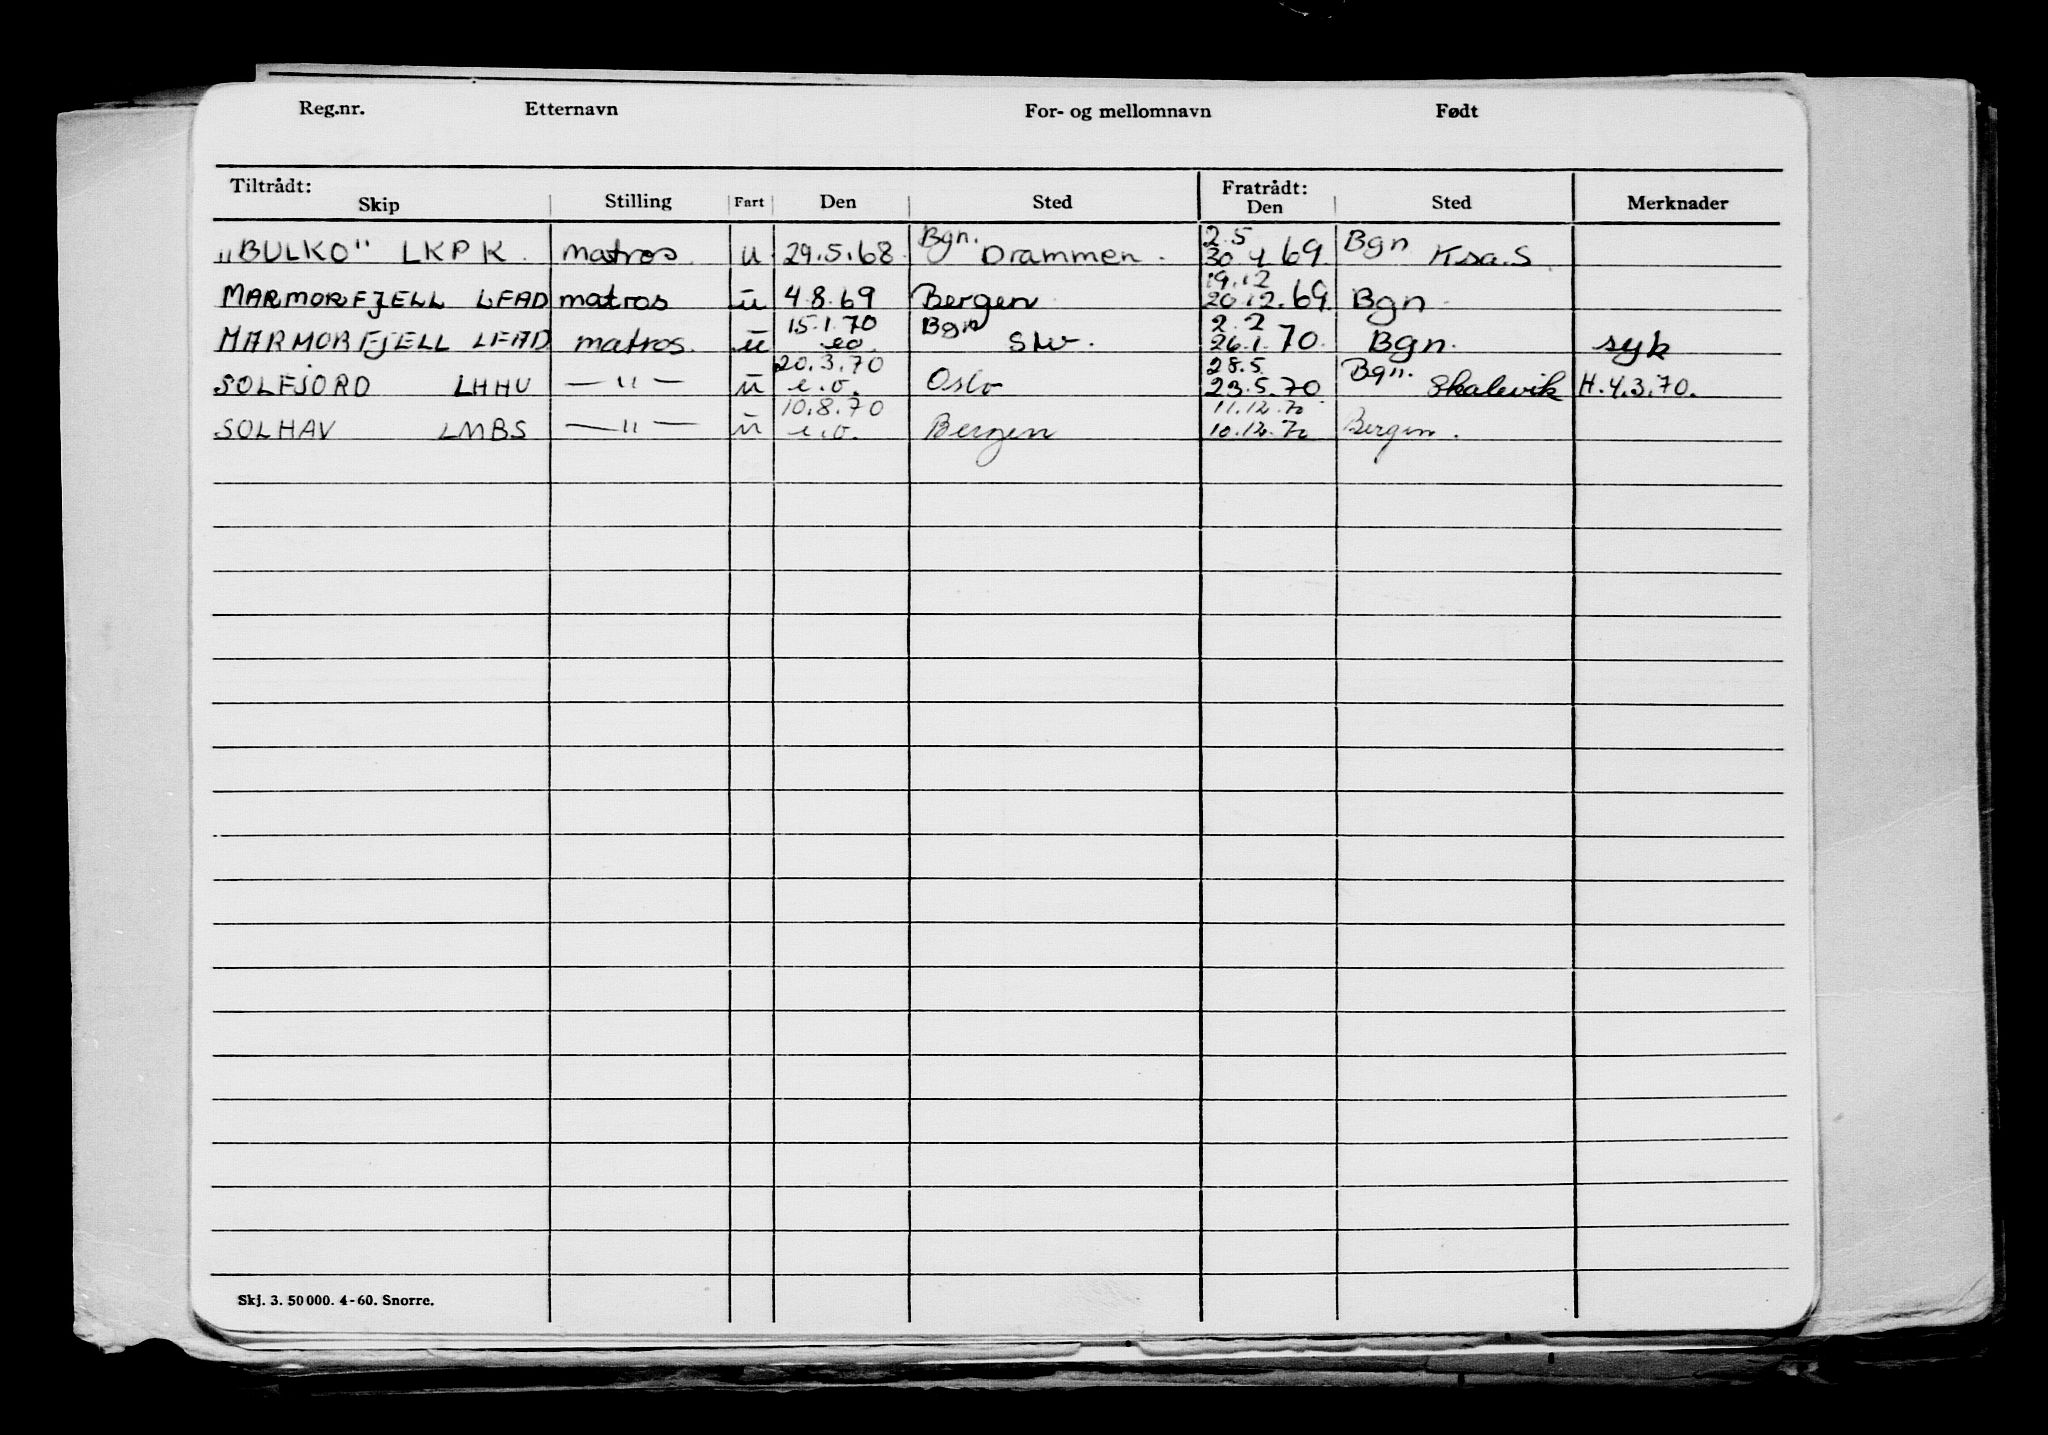 Reg.nr. Etternavn For- og mellomnavn Født
Tiltrådt: Fratrådt:
Skip Stilling Fart Den Sted Den Sted Merknader
„BULKO" LKPK. matros u 29.5.68 Bgn. Drammen. 2.5 30 4 69. Bgn Ksa.S
MARMORFJELL LFAD matros u 4.8.69 Bergen 19.12 20.12.69. Bgn
MARMORFJELL LFAD matros. u 15.1.70 eo Bgn 2.2 26.1.70. Bgn. syk
SOLFJORD LHHU — " — u 20.3.70 e.o. Oslo 28.5. 23.5.70 Bgn. Skalevik H.4.3.70.
SOLHAV LMBS — " — u 10.8.70 e.o. Bergen 11.12.70 10.12.70 Bergen.
Skj. 3. 50 000. 4-60. Snorre.